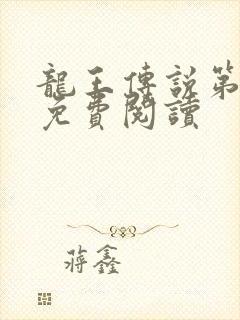 龍王傳說第
免費閱讀
蔣鑫